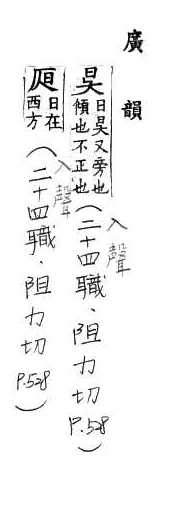 廣韻
昗日昗又旁也
傾也不正也
入聲
（二十四職．阻力切 P.528）
日在
西方
入聲
（二十四職．阻力切 P.528）